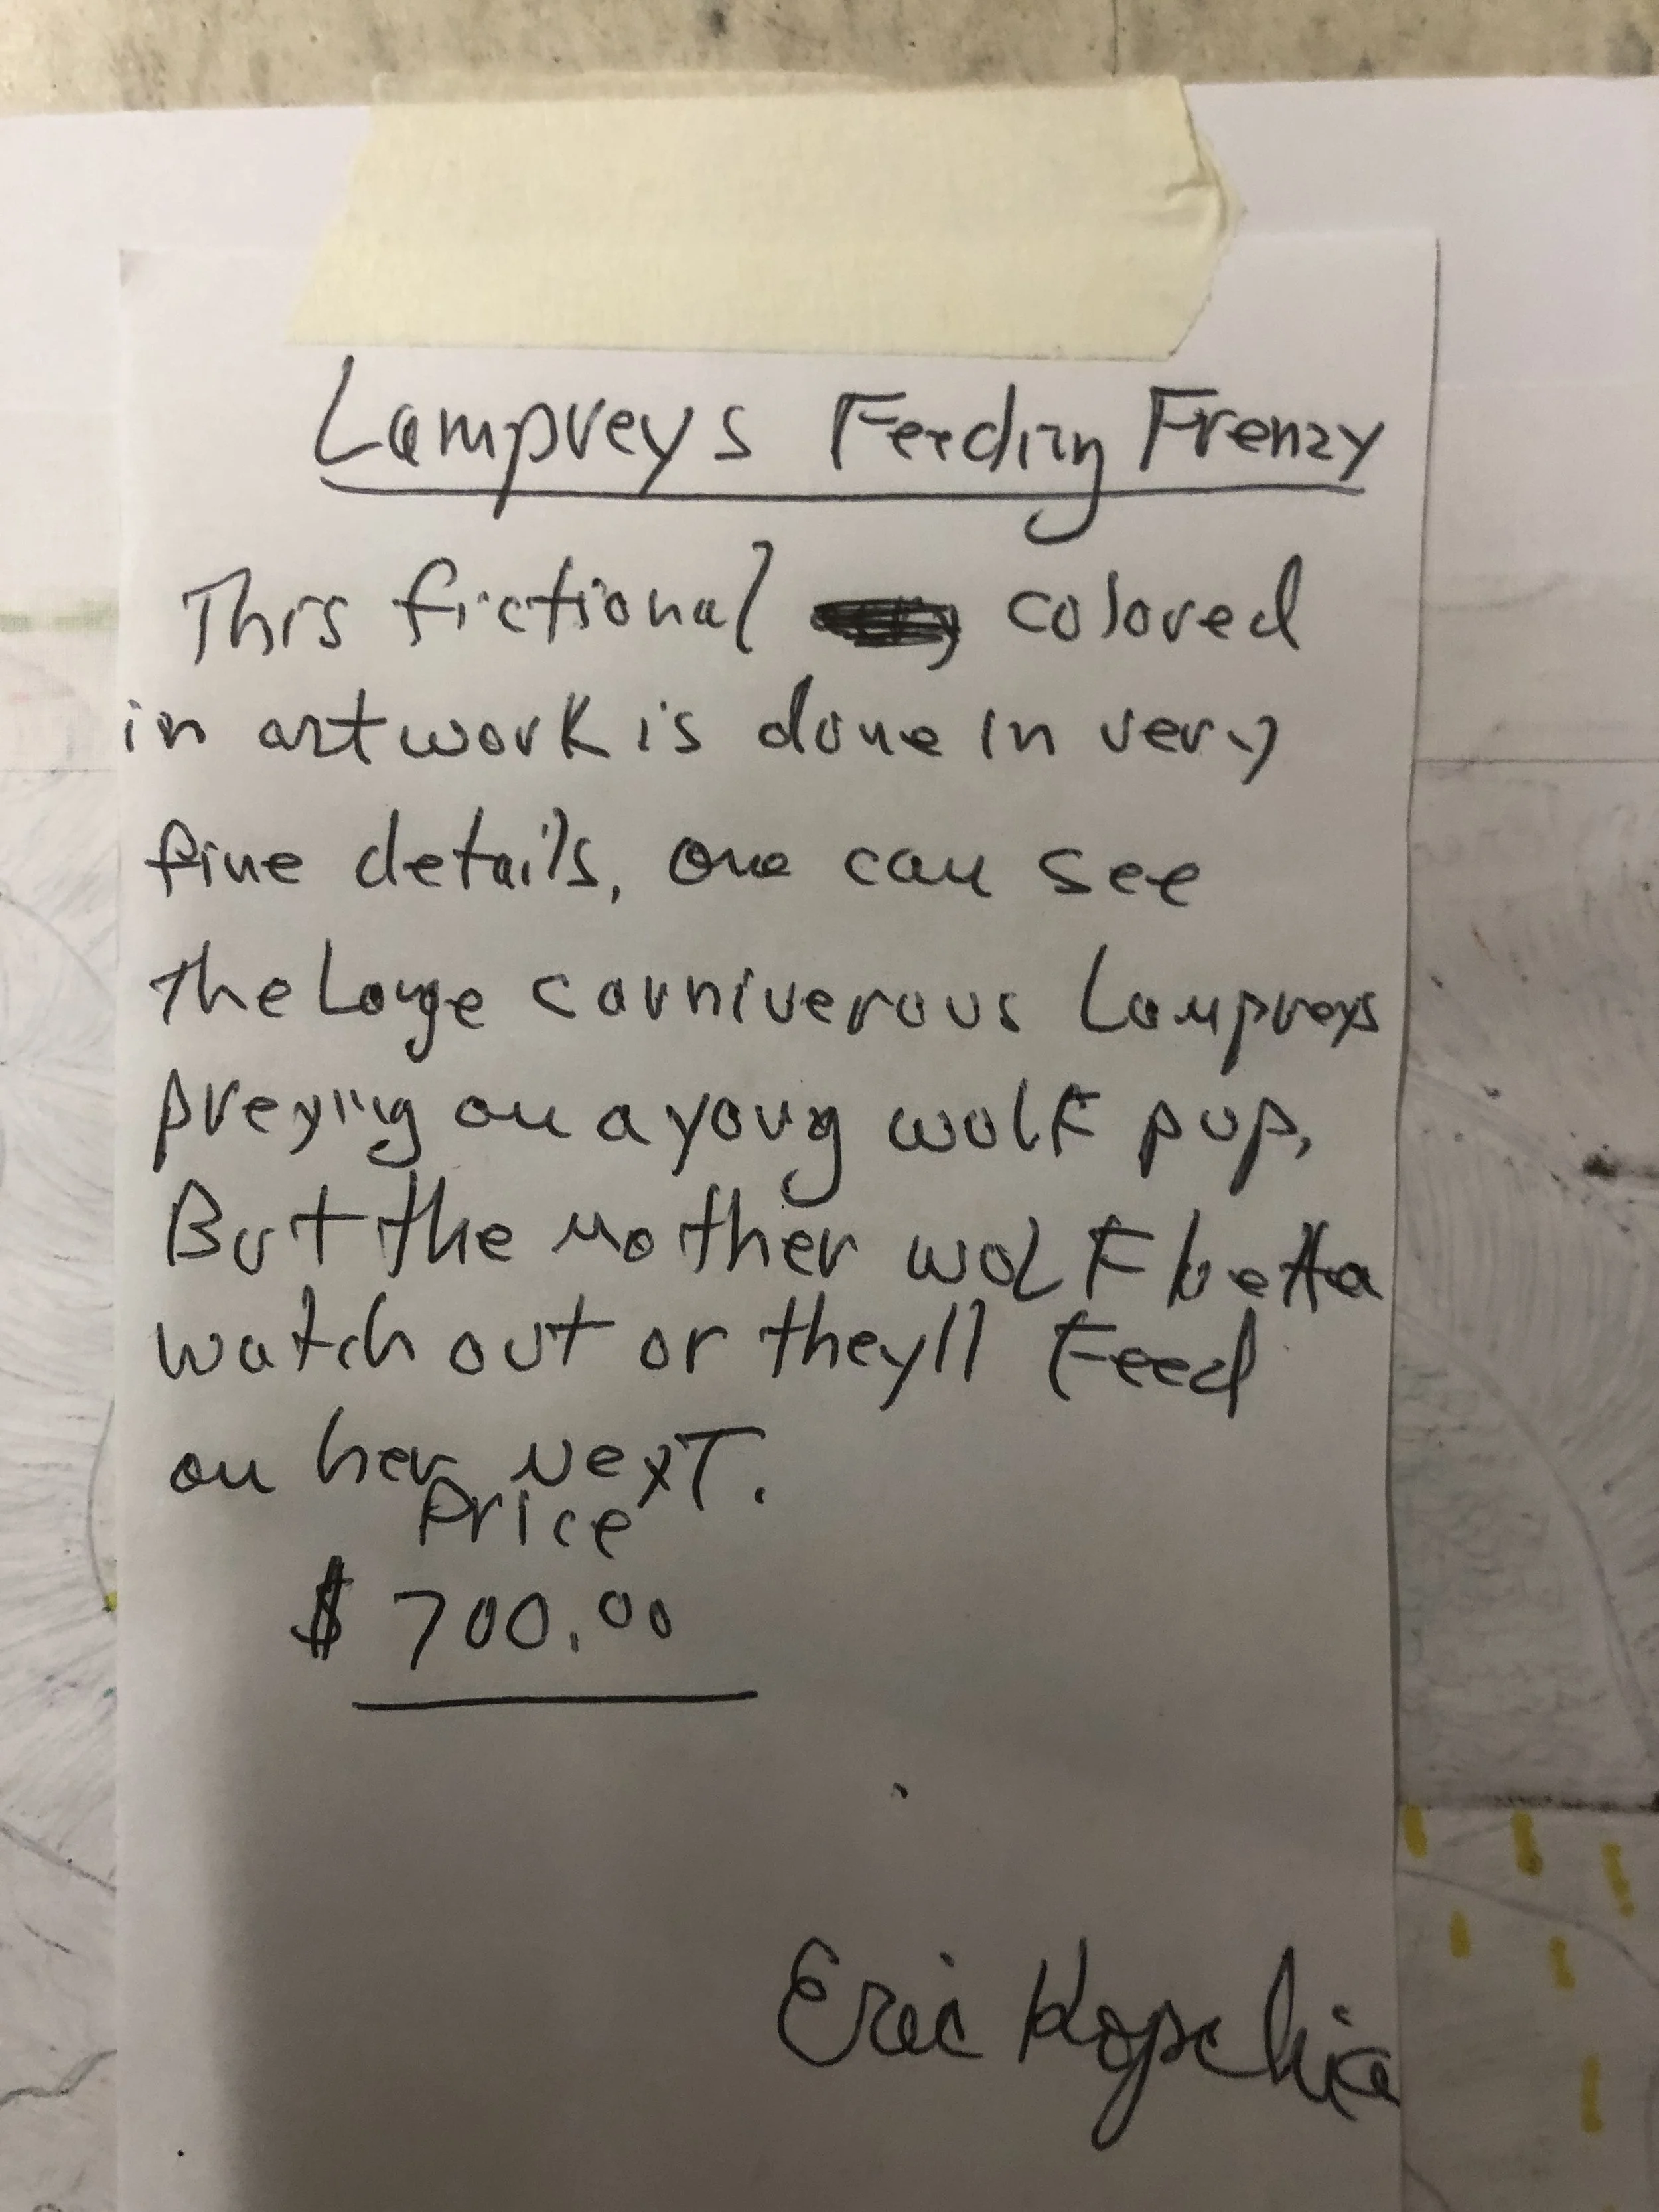 Lampreys Feeding Frenzy
This fictional colored
in artwork is done in very
fine details, one can see
the Large carniverous Lampreys
preying on a young wolf pup,
But the Mother wolf betta
watch out or they'll Feed
on her Next.
Price
$ 700.00
Eric